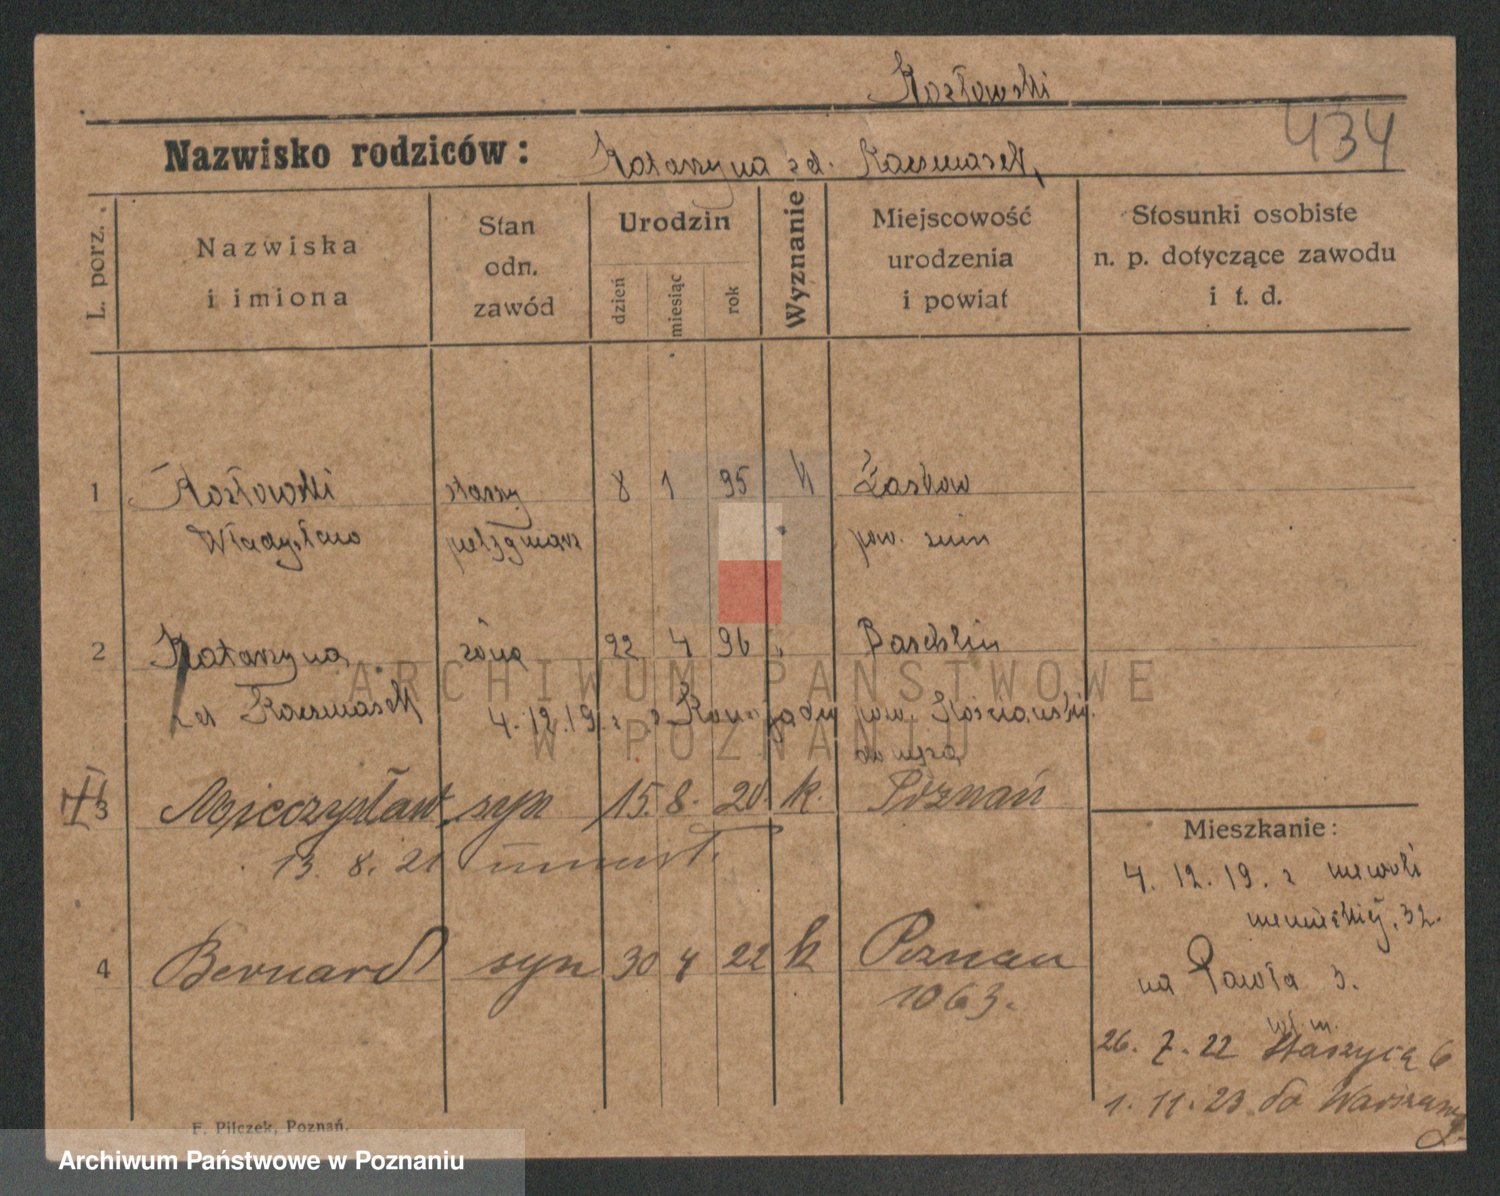 Kozłowski
434
Nazwisko rodziców: Katarzyna zd. Kaczmarek
L. porz.
Nazwiska
i imiona
Stan
odn.
zawód
Urodzin
dzień
miesiąc
rok
Wyznanie
Miejscowość
urodzenia
i powiat
Stosunki osobiste
n. p. dotyczące zawodu
i t. d.
1 Kozłowski starszy 8 1 95 k Żarków
Władysław pielęgniarz pow. żnin
2 Katarzyna żona 22 4 96 "
zd Kaczmarek 4.12.19. z pow. Kościański
3 Mieczysław syn 15. 8. 20 k. Poznań
13. 8. 21 umarł.
4 Bernard syn 30 4 22 k Poznań
1063.
Mieszkanie:
4. 12. 19. z niewoli
niemieckiej, 32.
na Pawła 3.
wł. m.
26. 7. 22 Staszyca 6
1. 11. 23 do Warszawy
F. Pilczek, Poznań.
ARCHIWUM PAŃSTWOWE
W POZNANIU
Archiwum Państwowe w Poznaniu